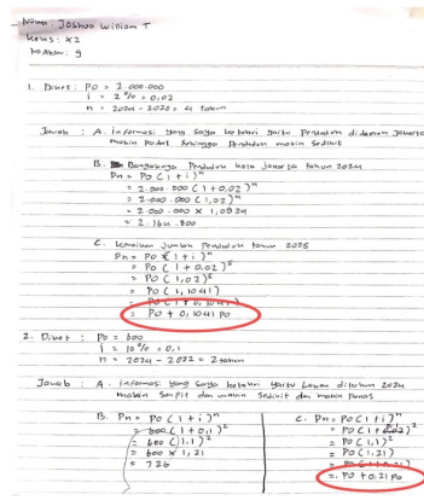 Nama : Joshua William T
Kelas : X2
No Absen : 9
1. Diket : Po = 2.000.000
i = 2% = 0,02
n = 2024 - 2020 = 4 tahun
Jawab : A. informasi yang saya ketahui yaitu Penduduk didaerah Jakarta
makin Padat sehingga Penduduk makin sedikit
B. Banyaknya Penduduk kota Jakarta tahun 2024
Pn = Po (1 + i)ⁿ
= 2.000.000 (1 + 0,02)ⁿ
= 2.000.000 (1,02)ⁿ
= 2.000.000 × 1,0824
= 2.164.800
C. Jumlah Penduduk tahun 2025
Pn = Po (1 + i)ⁿ
= Po (1 + 0,02)⁵
= Po (1,02)⁵
= Po (1,1041)
= Po (1 + 0,1041)
= Po + 0,1041 Po
2. Diket : Po = 600
i = 10% = 0,1
n = 2024 - 2022 = 2 tahun
Jawab : A. informasi yang saya ketahui yaitu Lawan ditahun 2024
makin sempit dan makin sedikit dan makin Panas
B. Pn = Po (1 + i)ⁿ
= 600 (1 + 0,1)²
= 600 (1,1)²
= 600 × 1,21
= 726
C. Pn = Po (1 + i)ⁿ
= Po (1 + 0,2)²
= Po (1,1)²
= Po (1,21)
= Po (1 + 0,21)
= Po + 0,21 Po